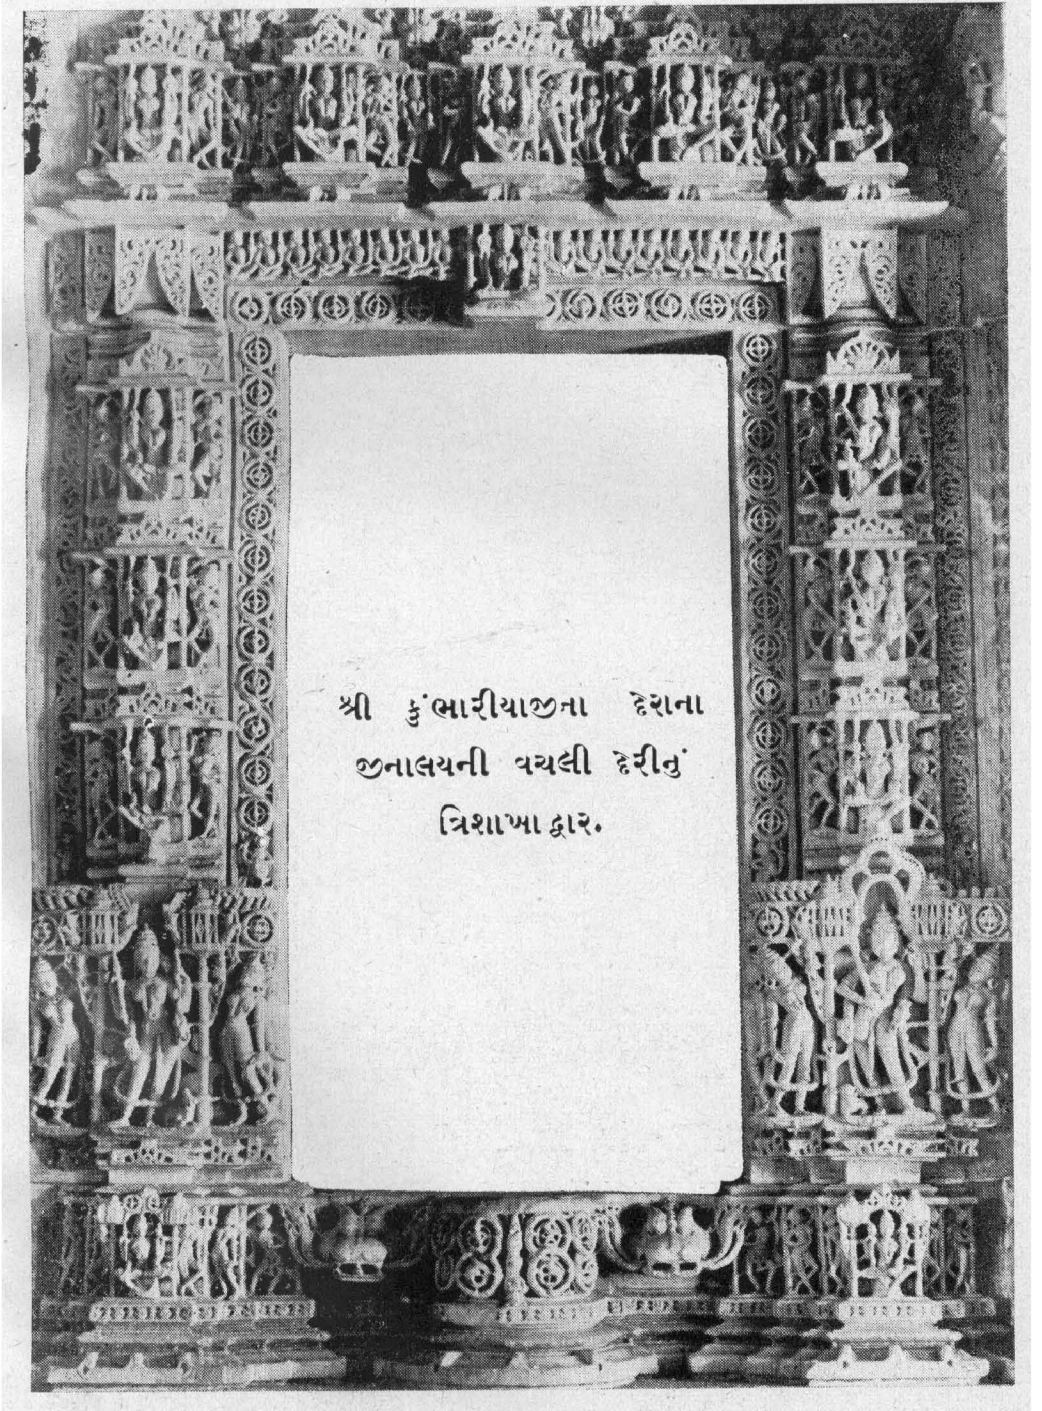 શ્રી કુંભારીયાજીતા દેરાના
જીનાલયની વચલી દેરીનું
ત્રિશાખા દ્વાર.